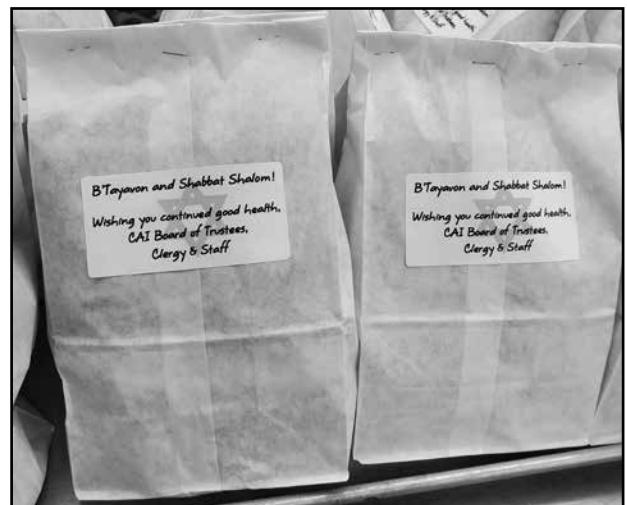 B'Tayavon and Shabbat Shalom!
Wishing you continued good health,
CAI Board of Trustees,
Clergy & Staff
B'Tayavon and Shabbat Shalom!
Wishing you continued good health,
CAI Board of Trustees,
Clergy & Staff